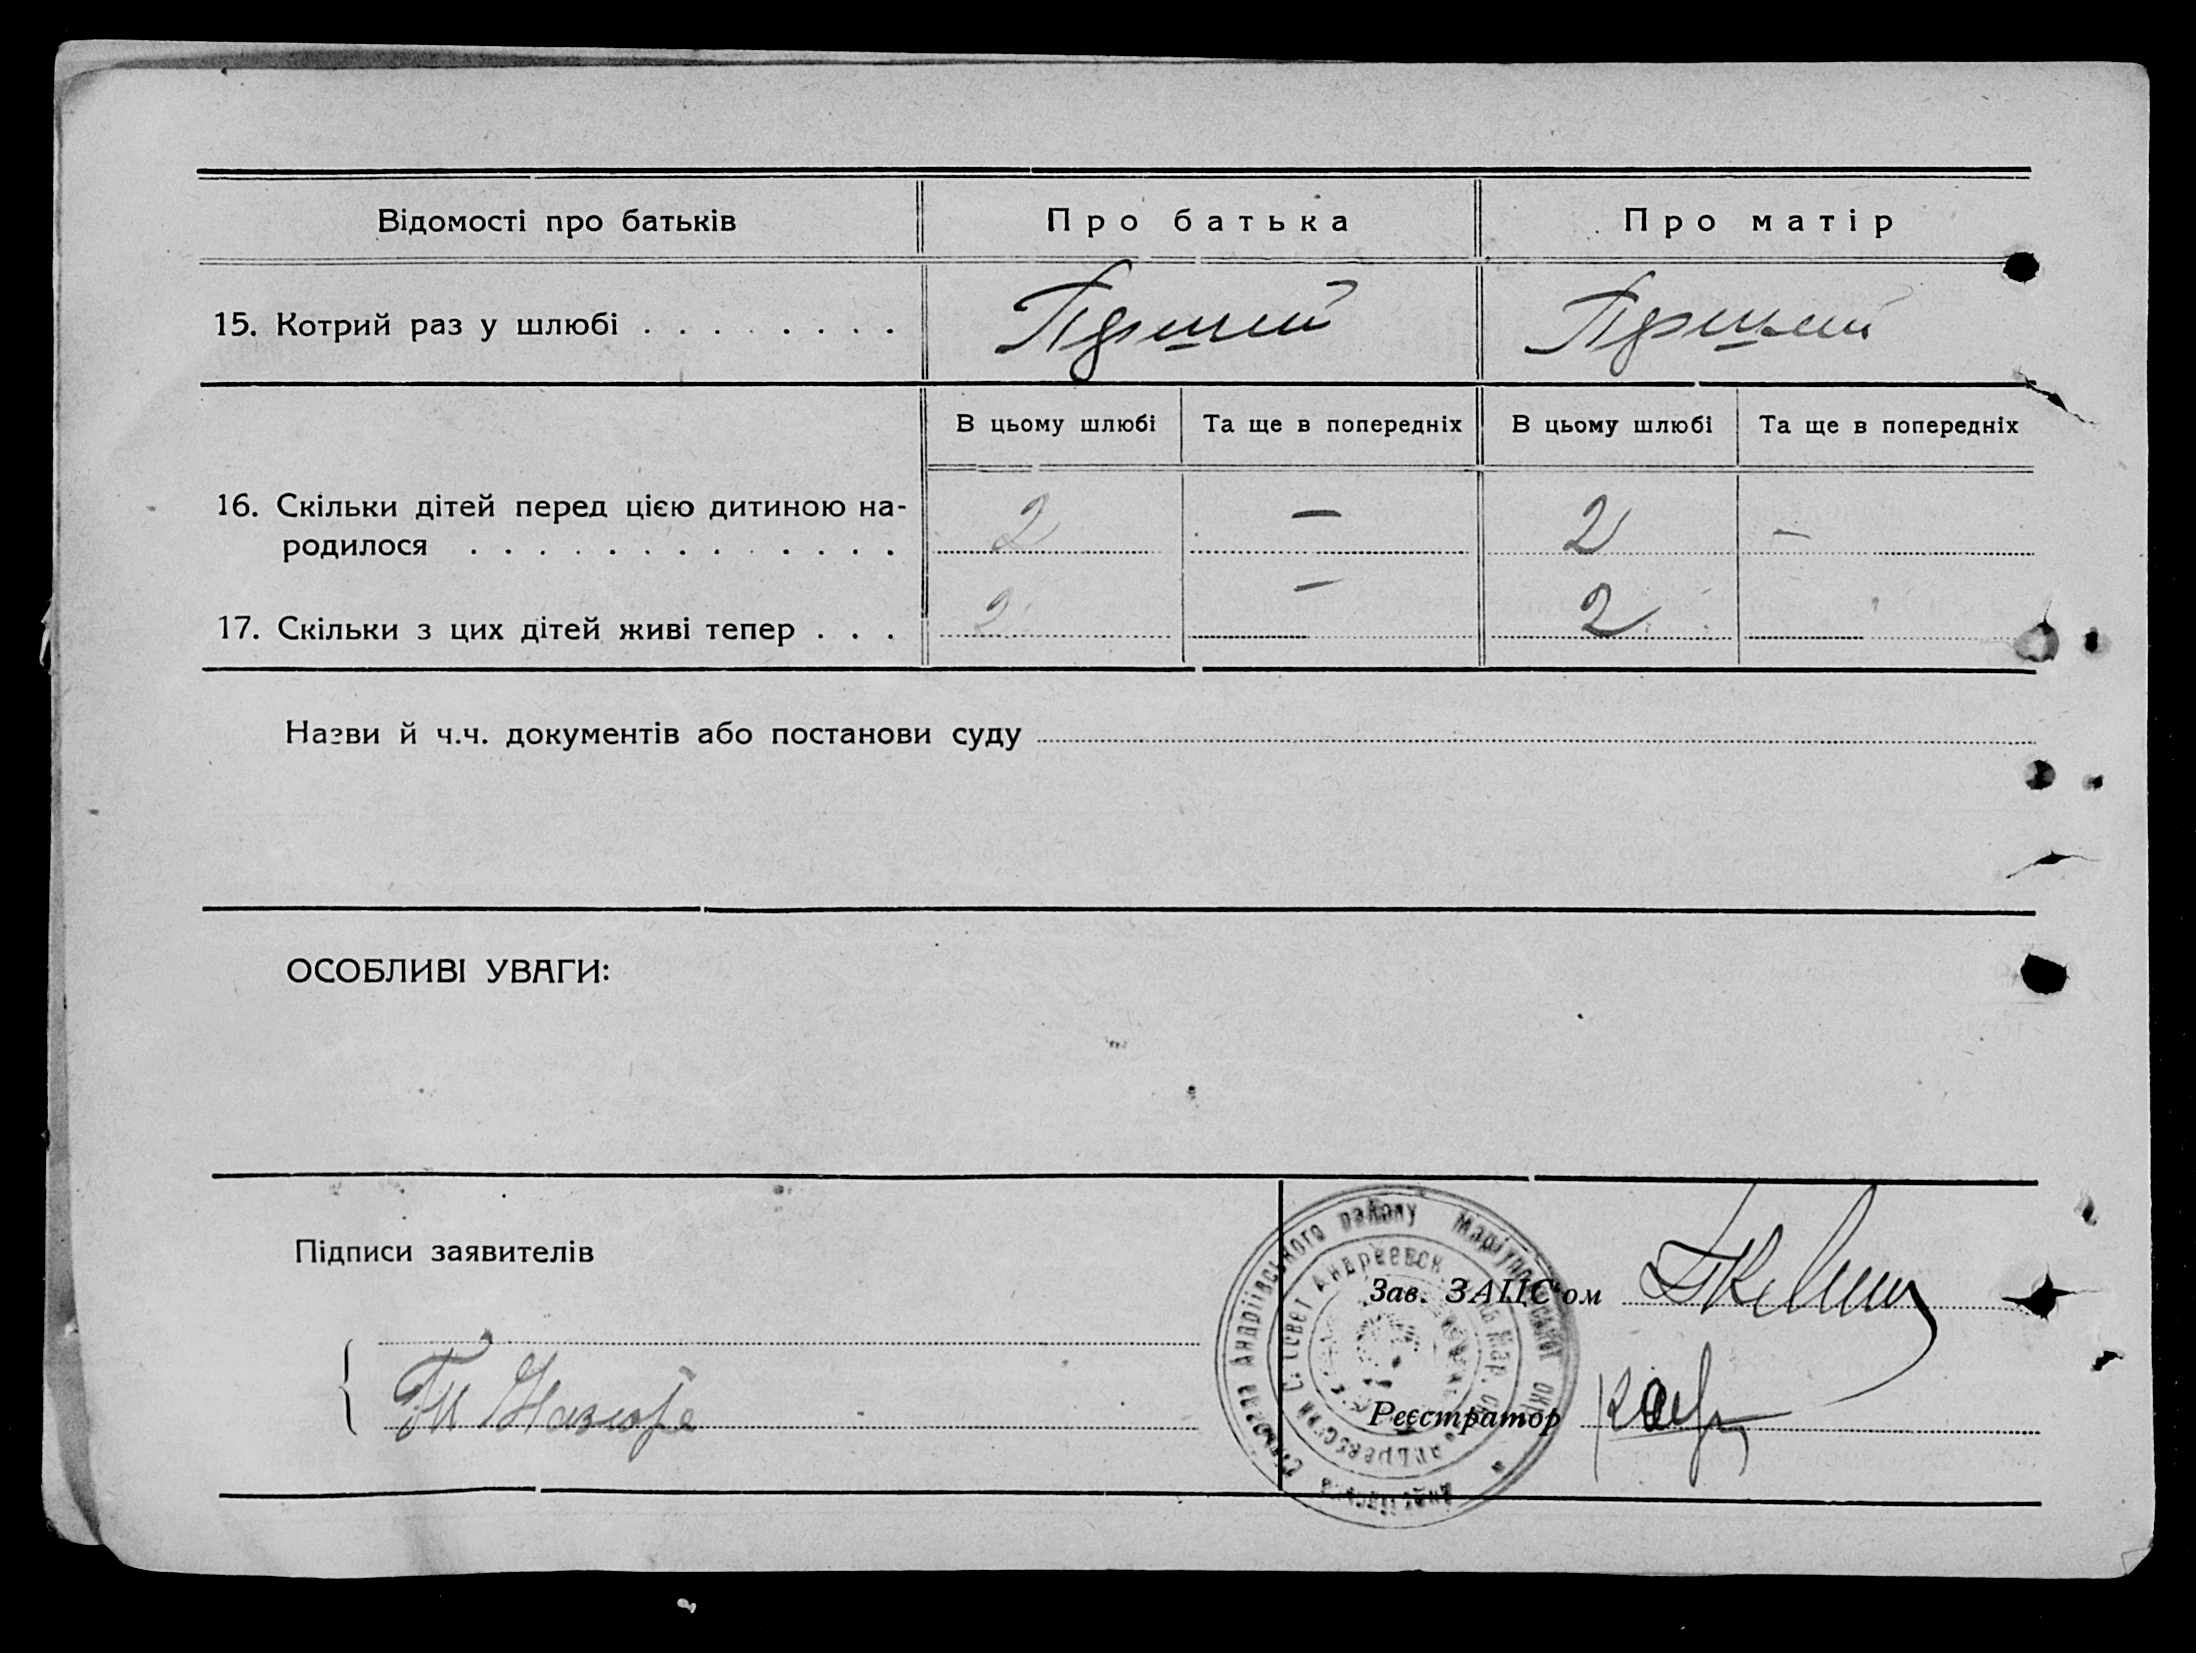 Відомості про батьків
Про батька
Про матір
15. Котрий раз у шлюбі . . . . . . . .
Перший
Перший
В цьому шлюбі
Та ще в попередніх
В цьому шлюбі
Та ще в попередніх
16. Скільки дітей перед цією дитиною на-
родилося . . . . . . . . . . . . .
2 — 2 —
17. Скільки з цих дітей живі тепер . . .
2 — 2
Назви й ч.ч. документів або постанови суду
ОСОБЛИВІ УВАГИ:
Підписи заявителів
Зав. ЗАЦС'ом
Реєстратор
Андріївського району Маріупольської окр.